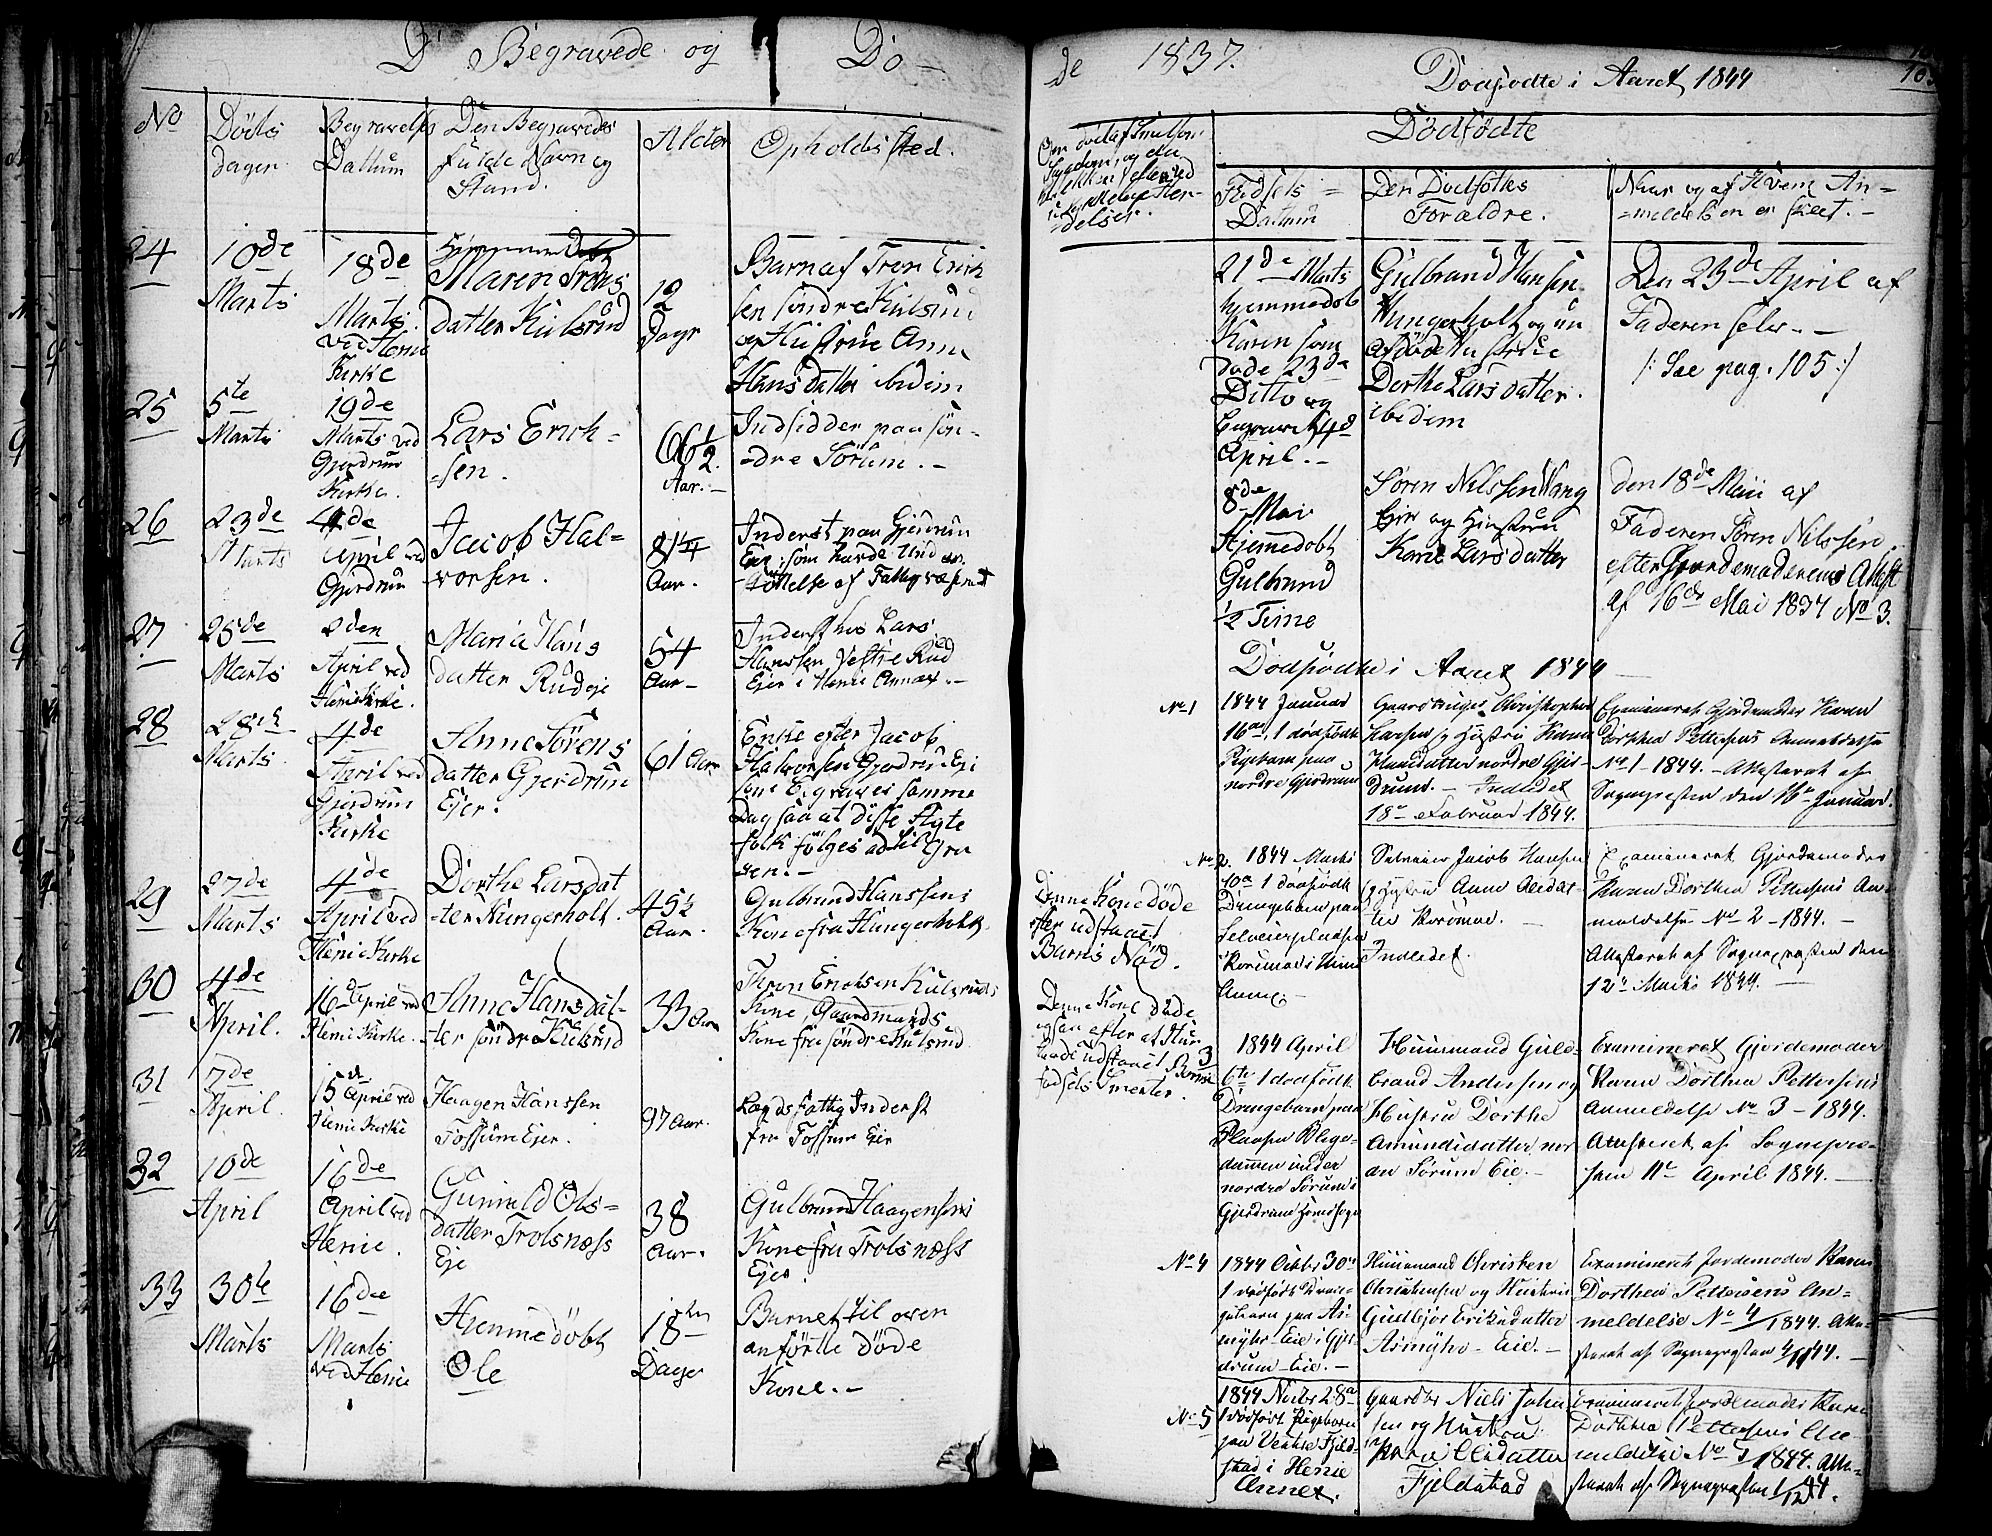 D Begravede og Dö-
No
Döds
dagen
Begravelses
Dattum
Den Begravedes
fulde Navn og
Stand.
Alder
Opholdssted.
24
10de
Marts
18de
Marts
ved Henie
Kirke
Hjemmedøbt
Maren Trons
datter Kulsrud
12
Dage
Barn af Tron Erich
sen söndre Kulsrud
og Hustrue Anne
Hansdatter ibidem
25
5te
Marts
19de
Marts ved
Gjerdrum
Kirke.
Lars Erich=
=sen.
66½
Aar.
Indsidder paa sön=
=dre Sörum.
26
23de
Marts
4de
April ved
Gjerdrum
Jacob Hal=
vorsen.
Aar.
Inderst paa Gjerdrum
Eie, som havde Under
støttelse af Fattigvæsenet
27
25de
Marts
2den
April ved
Henie Kirke.
Maria Hans
datter Rudeje
54
Aar
Inderst hos Lars
Hanssen Vestre Rud
Ejer i Henie Annex.
28
28de
Marts
4de
April ved
Gjerdrum
Kirke
Anne Sörens
datter Gjerdrum
Ejer.
61 Aar
Enke efter Jacob
Halvorsen Gjerdrum Eje
som begraves samme
Dag saa at disse Ægte
folk fölges ad til Gra
ven.
29
27de
Marts
4de
April ved
Henie Kirke
Dorthe Larsdat
=ter Kungerholt.
45½
Aar.
Gulbrand Hanssens
Kone fra Hungerholt.
30
4de
April.
16de April ved
Henie Kirke.
Anne Hansdat=
=ter söndre Kulsrud
33 Aar
Thron Erichsen Kulsruds
Kone, Gaardmands
Kone fra söndre Kulsrud
31
7de
April.
15de April ved
Henie Kirke
Haagen Hanssen
Fossum Ejer.
97 Aar.
Lægdsfattig Inderst
fra Fossum Eje
32
10de
April
16de
April ved
Henie.
Gunild Ols=
datter Trolsnæss
Eje
38
Aar.
Gulbrand Haagensens
Kone fra Trolsnæss
Ejer.
33
30te
Marts
16de
Marts
ved Henie
Hjemmedöbt
Ole
18ten
Dage
Barnet til oven
anförtte döde
Kone.
de 1837.
Dodfodte i Aaret 1844
Dödfödte
Födsels=
Dattum
Den Dodfödtes
Forældre.
Naar og af Hvem An=
=meldelsen er skeet.
21de Marts
hjemmedobt
Karen som
döde 23de
Ditto og
begravet 4de
April.
Gulbrand Hansen
Hungerholt og nu
afdöde Hustrue
Dorthe Larsdatter.
ibidem
Den 23de April af
Faderen selv.
/: See pag. 105 :/
8de
Mai
Hjemmedobt
Gulbrand
½ Time
Sören Nilssen Vang
Ejer og Hustrue
Karie Larsdatter
Den 18de Maii af
Faderen Sören Nilssen.
efter Gjordemoderens Attest
af 16de Mai 1837 No 3.
Dodfodte i Aaret 1844
No 1
1844 Januar
16de, 1 dödfödt
Pigebarn paa
nordre Gjerdrum
Gaardbruger Christopher
Hansen og Hustru Karen
Hansdatter nordre Gjer-
drum. Indledet
18de Februar 1844.
Examineret Gjordemoder Karen
Dorthea Pettersens Anmeldelse
No 1 - 1844. Attesteret af
Sognepresten den 16de Januar.
No 2.
1844 Marts
10de 1 dodfodt
Drengebarn paa
Selveierpladsen
i Henie
Annex.
Selveier Jacob Hansen
og Hustru Anne Olesdat-
ter
Indledet.
Examineret Gjordemoder
Karen Dorthea Pettersens An-
meldelse No 2 - 1844.
Attesteret af Sognepresten den
12te Marts 1844.
Denne Kone döde
efter udstaaet
Barns Nød.
Denne Kone döde
ogsaa efter at hun
havde udstaaet Barne
fødsels Smerter.
3
1844 April
6te 1 dodfodt
Drengebarn paa
Pladsen
under
nordre Sörum i
Gjerdrum Hovedsogn
Huusmand Guld-
brand Andersen og
Hustru Dorthe
Amundsdatter nor
dre Sörum Eie.
Examineret Gjordemoder
Karen Dorthea Pettersens
Anmeldelse No 3 - 1844.
Attesteret af Sognepre-
sten 11te April 1844.
No 4
1844 Octbr 30te
1 dödfödt Dren-
gebarn paa As-
myhr Eie i Gjer
drum Eie.
Huusmand Christen
Christensen og Hustrue
Gudbjør Eriksdatter
Asmyhr Eie.
Examineret Jordemoder Karen
Dorthea Pettersens An=
meldelse No 4/1844. Atte-
steret af Sognepresten 4/11 44.
No 5
1844 Novbr 28de
1 dödfödt Pigebarn
paa Vestre Fjeld-
stad i Henie
Annex.
Gaardbr Niels Johan
sen og Hustru
Olesdatter
Fjeldstad
Examineret Jordemoder Karen
Dorthea Pettersens An
meldelse No 5/1844. Atte-
steret af Sognepresten 1/12 44.